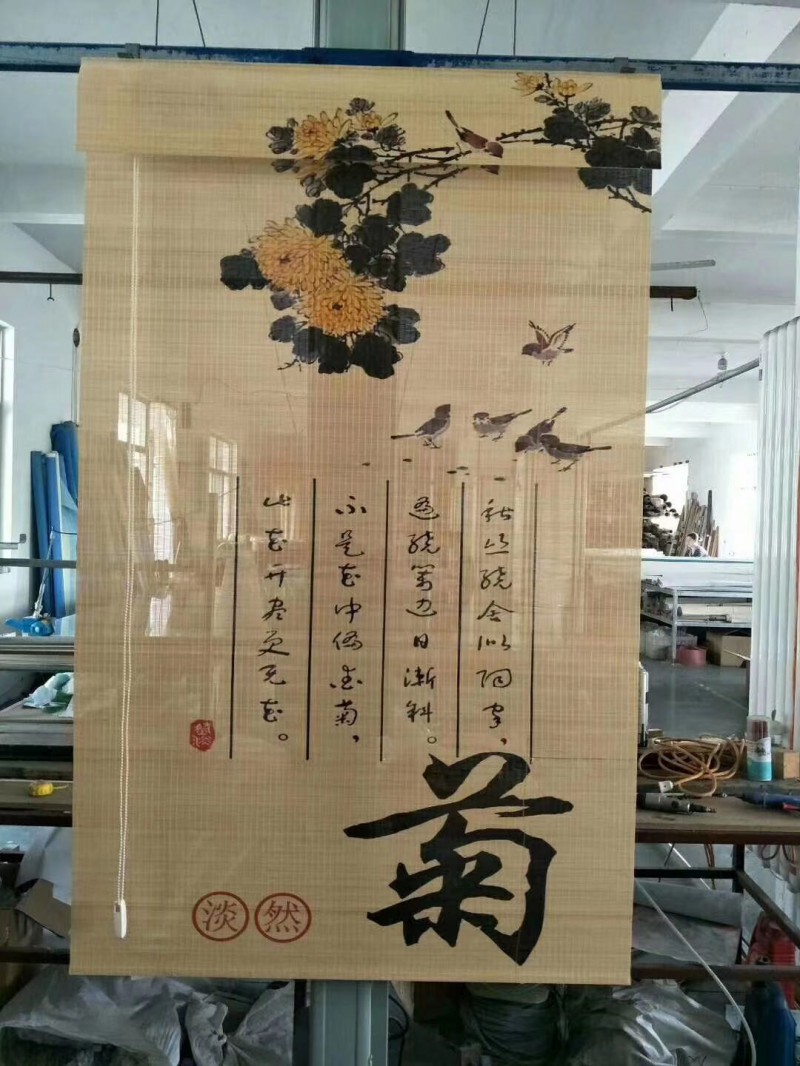 秋丛绕舍似陶家，
遍绕篱边日渐斜。
不是花中偏爱菊，
此花开尽更无花。
菊
淡然